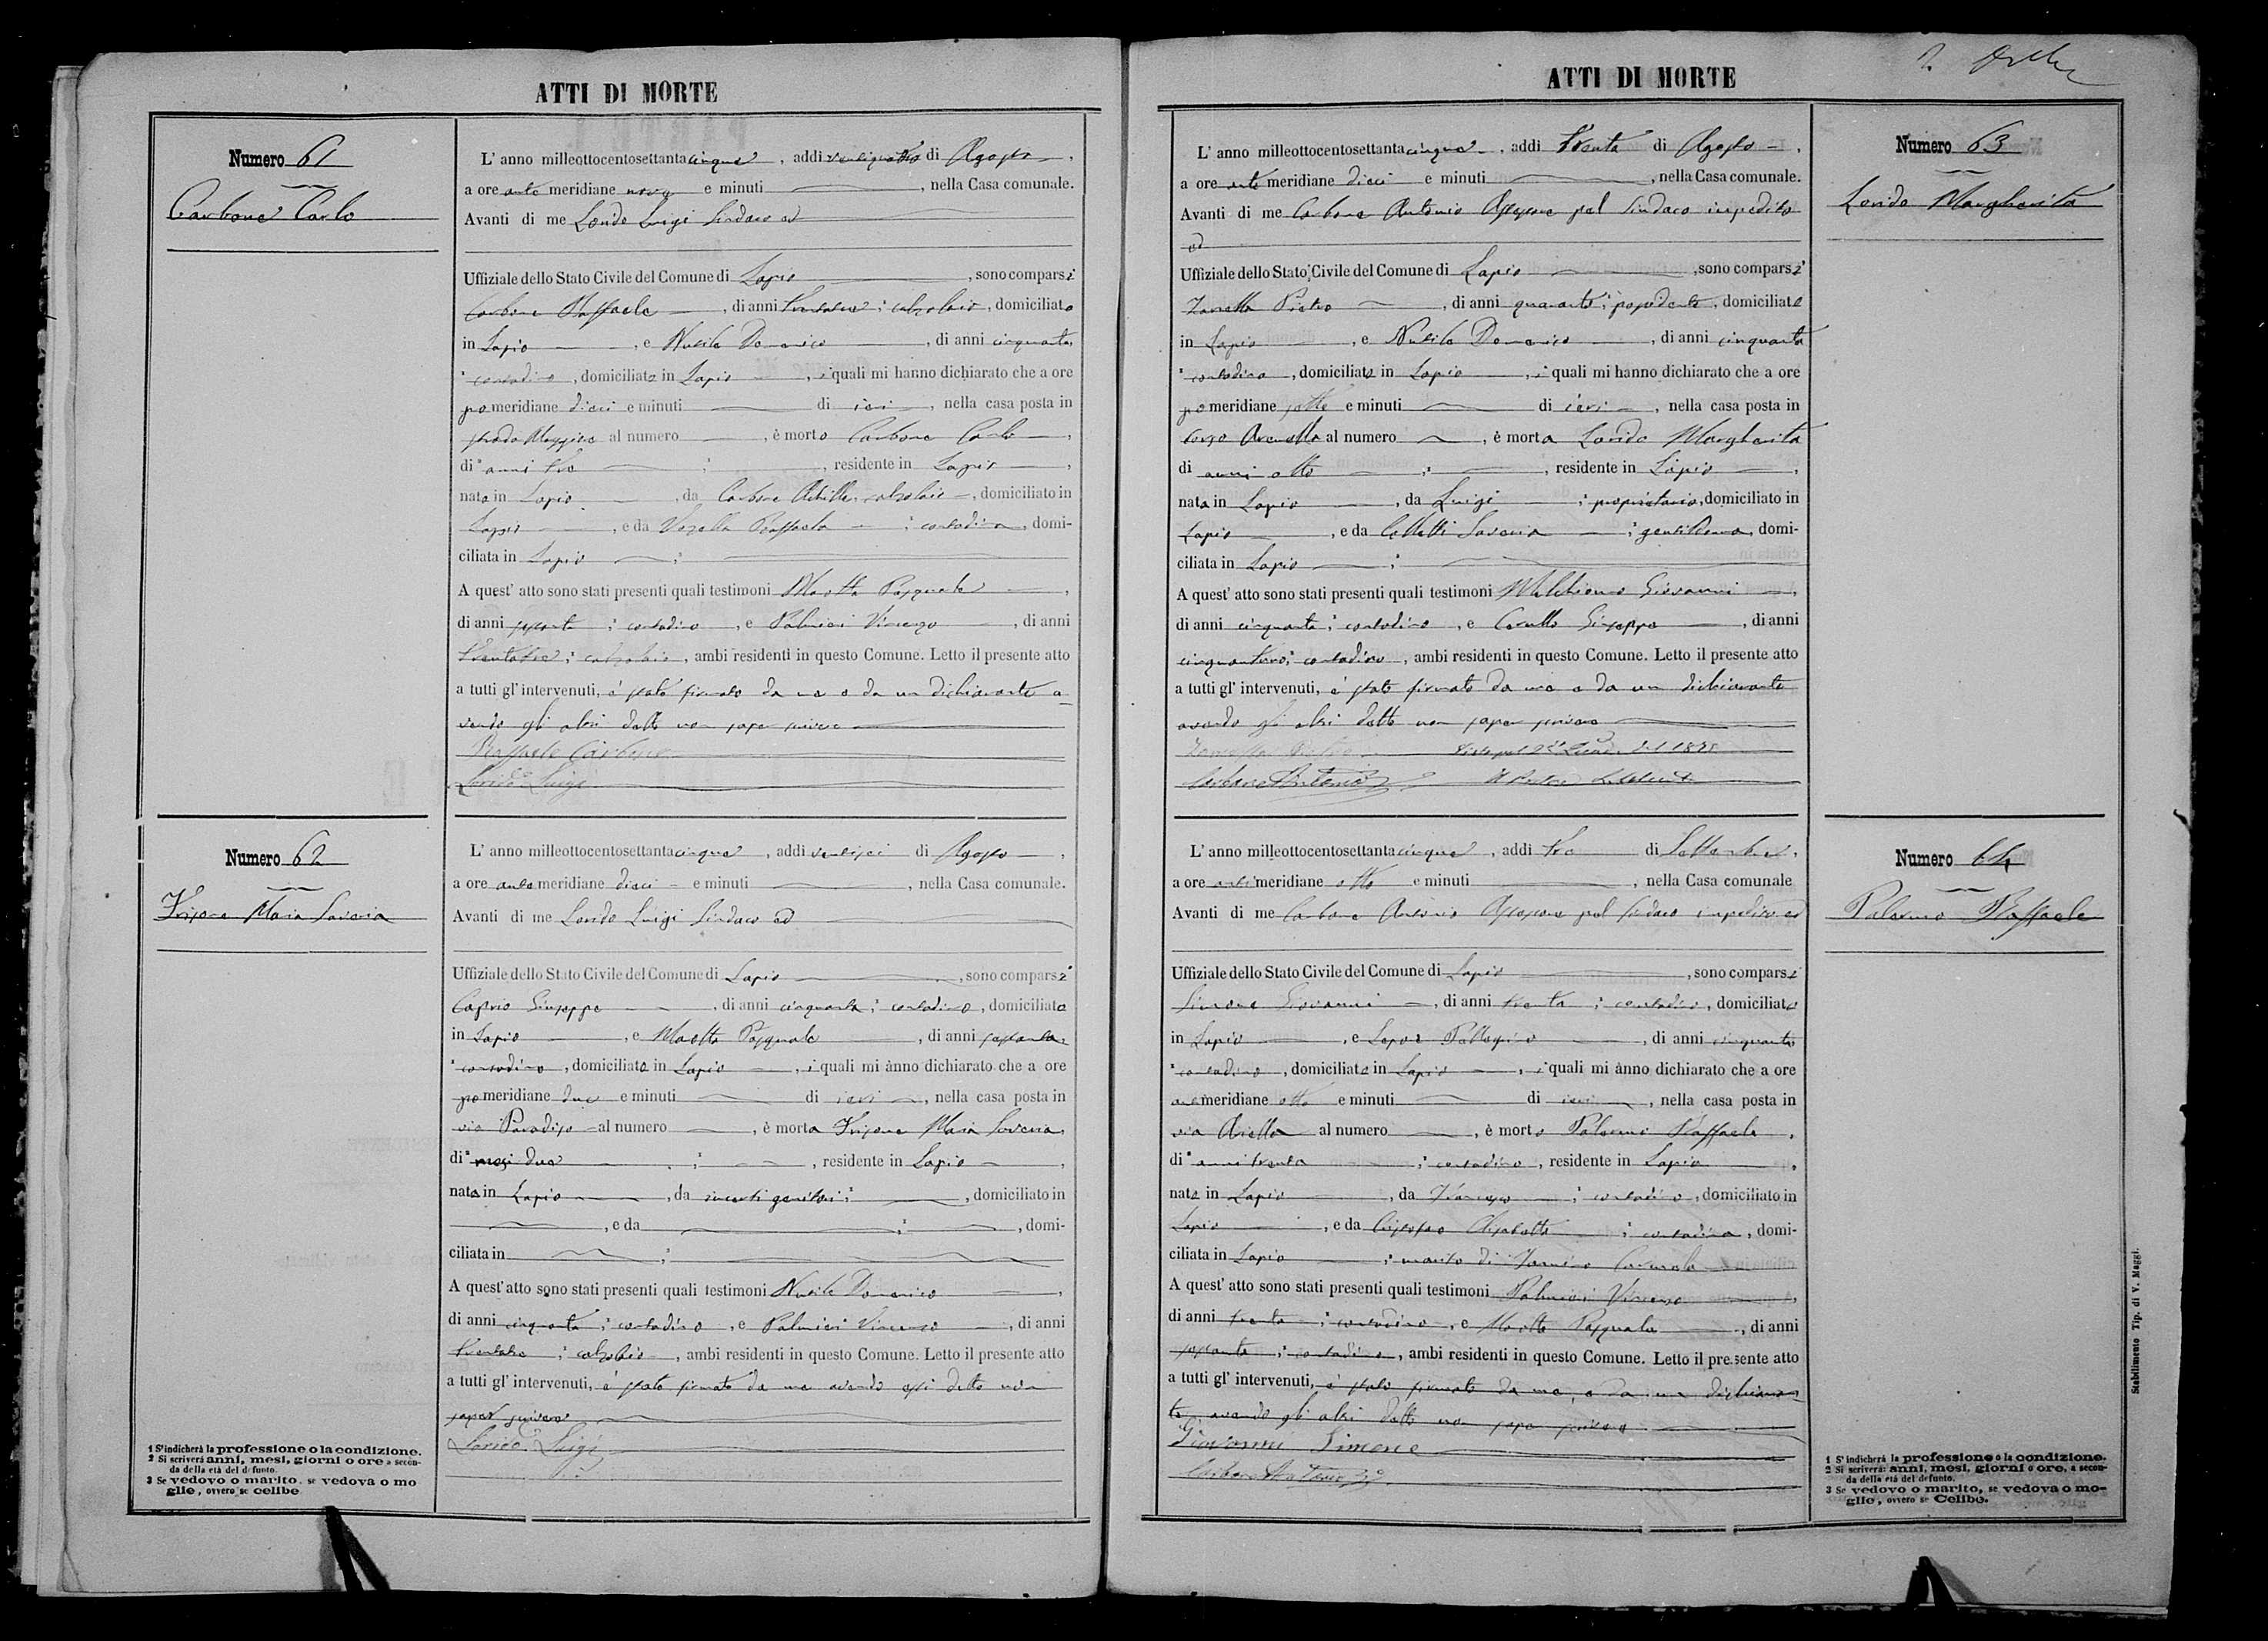 ATTI DI MORTE
Numero 61
Carbone Carlo
L' anno milleottocentosettantacinque, addi ventiquattro di Agosto,
a ore ante meridiane nove e minuti, nella Casa comunale.
Avanti di me Lorido Luigi Sindaco ed
Uffiziale dello Stato Civile del Comune di Lapio, sono comparsi
Carbone Raffaele, di anni trentatre; calzolaio, domiciliato
in Lapio, e Nubile Domenico, di anni cinquanta,
contadino, domiciliato in Lapio, i quali mi hanno dichiarato che a ore
pomeridiane dieci e minuti di ieri, nella casa posta in
strada Maggiore al numero, è morto Carbone Carlo,
di anni tre, residente in Lapio,
nato in Lapio, da Carbone Achille, calzolaio, domiciliato in
Lapio, e da Raffaela; contadina, domi-
ciliata in Lapio;
A quest' atto sono stati presenti quali testimoni Maotta Pasquale,
di anni sessanta; contadino, e Palmieri Vincenzo, di anni
trentatre; calzolaio, ambi residenti in questo Comune. Letto il presente atto
a tutti gl' intervenuti, è stato firmato da me e da un dichiarante a-
vendo gli altri detto non saper scrivere
Raffaele Carbone
Lorido Luigi
Numero 62
Maria Saveria
L' anno milleottocentosettantacinque, addi ventisei di Agosto,
a ore antemeridiane dieci e minuti, nella Casa comunale.
Avanti di me Lorido Luigi Sindaco ed
Uffiziale dello Stato Civile del Comune di Lapio, sono comparsi
Giuseppe, di anni cinquanta; contadino, domiciliato
in Lapio, e Maotta Pasquale, di anni sessanta,
contadino, domiciliato in Lapio, i quali mi ànno dichiarato che a ore
pomeridiane due e minuti di ieri, nella casa posta in
via Paradiso al numero, è morta Maria Saveria,
di mesi due; residente in Lapio,
nata in Lapio, da incerti genitori; domiciliato in
, e da ; , domi-
ciliata in ;
A quest' atto sono stati presenti quali testimoni Nubile Domenico,
di anni cinquanta; contadino, e Palmieri Vincenzo, di anni
trentatre; calzolaio, ambi residenti in questo Comune. Letto il presente atto
a tutti gl' intervenuti, è stato firmato da me avendo essi detto non
saper scrivere
Lorido Luigi
1 S' indicherà la professione o la condizione.
2 Si scriverà anni, mesi, giorni o ore a secon-
da della età del defunto.
3 Se vedovo o marito, se vedova o mo
glie, ovvero se celibe
ATTI DI MORTE
Numero 63
Lorido Margherita
L' anno milleottocentosettantacinque, addi trenta di Agosto,
a ore ante meridiane dieci e minuti, nella Casa comunale.
Avanti di me Carbone Antonio Assessore pel Sindaco impedito
ed
Uffiziale dello Stato Civile del Comune di Lapio, sono comparsi
Pietro, di anni quaranta; possidente, domiciliato
in Lapio, e Nubile Domenico, di anni cinquanta
contadino, domiciliato in Lapio, i quali mi hanno dichiarato che a ore
pomeridiane sette e minuti di ieri, nella casa posta in
Corso al numero, è morta Lorido Margherita
di anni otto; residente in Lapio,
nata in Lapio, da Luigi; proprietario, domiciliato in
Lapio, e da Colletti Saveria; gentildonna, domi-
ciliata in Lapio;
A quest' atto sono stati presenti quali testimoni Melchionno Giovanni,
di anni cinquanta; contadino, e Carullo Giuseppe, di anni
cinquantuno; contadino, ambi residenti in questo Comune. Letto il presente atto
a tutti gl' intervenuti, è stato firmato da me e da un dichiarante
avendo gli altri detto non saper scrivere
Carbone Antonio
Numero 64
Palermo Raffaele
L' anno milleottocentosettantacinque, addi tre di Settembre,
a ore antimeridiane otto e minuti, nella Casa comunale
Avanti di me Carbone Antonio Assessore pel Sindaco impedito ed
Uffiziale dello Stato Civile del Comune di Lapio, sono comparsi
Simone Giovanni, di anni trenta; contadino, domiciliato
in Lapio, e Lepore Pellegrino, di anni cinquanta
contadino, domiciliato in Lapio, i quali mi ànno dichiarato che a ore
antemeridiane otto e minuti di ieri, nella casa posta in
via Ariella al numero, è morto Palermo Raffaele,
di anni trenta; contadino, residente in Lapio,
nato in Lapio, da; contadino, domiciliato in
Lapio, e da Elisabetta; contadina, domi-
ciliata in Lapio; marito di Carmela
A quest' atto sono stati presenti quali testimoni Palmieri Vincenzo,
di anni trenta; contadino, e Maotta Pasquale, di anni
sessanta; contadino, ambi residenti in questo Comune. Letto il presente atto
a tutti gl' intervenuti, è stato firmato da me, e da un dichiaran-
te, avendo gli altri detto non saper scrivere
Giovanni Simone
Carbone Antonio
1 S' indicherà la professione o la condizione.
2 Si scriverà: anni, mesi, giorni o ore, a secon-
da della età del defunto.
3 Se vedovo o marito, se vedova o mo-
glie, ovvero se Celibe.
Stabilimento Tip. di V. Maggi.